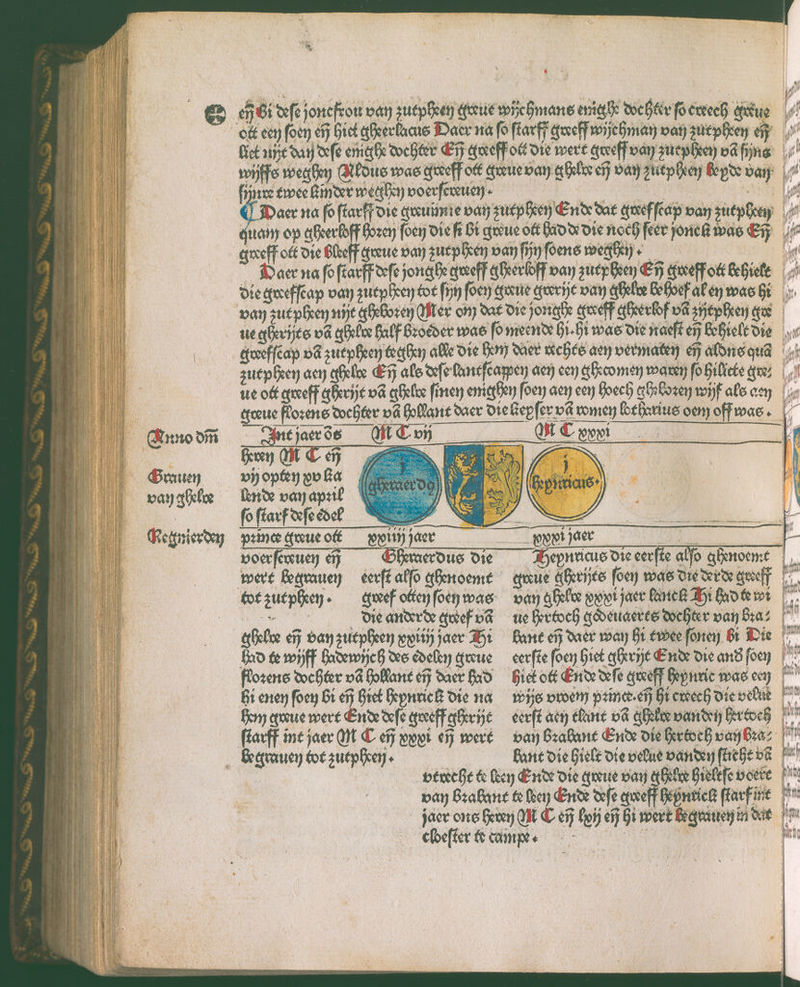 eñ bi dese joncfrou van zutphen greue wijchmans enighe dochter so creech greue
ott een soen eñ hiet gheerlacus Daer na so starff greeff wijchman van zutphen eñ
liet nijt dan dese enighe dochter Eñ greeff ott die wert greeff van zutphen vā sijns
wijffs weghen Aldus was greeff ott greue van ghelre eñ van zutphen beyde van
sijnre twee kinder weghen voerscreuen.
Daer na so starff die greuinne van zutphen Ende dat greefscap van zutphen
quam op gheerloff horen soen die si bi greue ott hadde die noch seer jonck was Eñ
greeff ott die bleeff greue van zutphen van sijn soens weghen.
Daer na so starff dese jonghe greeff gheerloff van zutphen Eñ greeff ott behielt
die greeffscap van zutphen tot sijn soen greue gerijt van ghelre behoef al en was hi
van zutphen nijt gheboren Mer om dat die jonghe greeff gheerlof vā zijtphen gre
ue gherijts vā ghelre half broeder was so meende hi. hi was die naest eñ behielt die
greefscap vā zutphen teghen alle die hem daer rechts aen vermaten eñ aldus quā
zutphen aen ghelre Eñ als dese lantscappen aen een ghecomen waren so hilicte gre⸗
ue ott greeff gherijt vā ghelre sinen enighen soen aen een hoech gheboren wijf als aen
greue florens dochter vā hollant daer die keyser vā romen lotharius oem off was.
Anno dm̄
Grauen
van ghelre
Regnierden
Int jaer ōs
heren M C eñ
vij opten xv ka
lende van april
so starf dese edel
prince greue ott
voerscreuen eñ
wert begrauen
tot zutphen.
M C vij
M C xxxi
j
gheraerd9
j
heynricus.
xxiiij jaer
xxxi jaer
Gheraerdus die
eerst also ghenoemt
greef otten soen was
die anderde greef vā
ghelre eñ van zutphen xxiiij jaer Hi
had te wijff hadewijch des edelen greue
florens dochter vā hollant eñ daer had
hi enen soen bi eñ hiet heynrick die na
hem greue wert Ende dese greeff gherijt
starff int jaer M C eñ xxxi eñ wert
begrauen tot zutphen.
Heynricus die eerste also ghenoemt
greue gherijts soen was die derde greeff
van ghelre xxxi jaer lanck Hi had te wi
ue hertoch godeuaerts dochter van bra⸗
bant eñ daer wan hi twee sonen bi Die
eerste soen hiet gherijt Ende die and̄ soen
hiet ott Ende dese greeff heynric was een
wijs vroem prince. eñ hi creech die velue
eerst aen tlant vā ghelre vanden hertoch
van brabant Ende die hertoch van bra⸗
bant die hielt die velue vanden sticht vā
vtrecht te leen Ende die greue van ghelre hieltse voert
van brabant te leen Ende dese greeff heynrick starf int
jaer ons heren M C eñ lxij eñ hi wert begrauen in dat
cloester te campe.